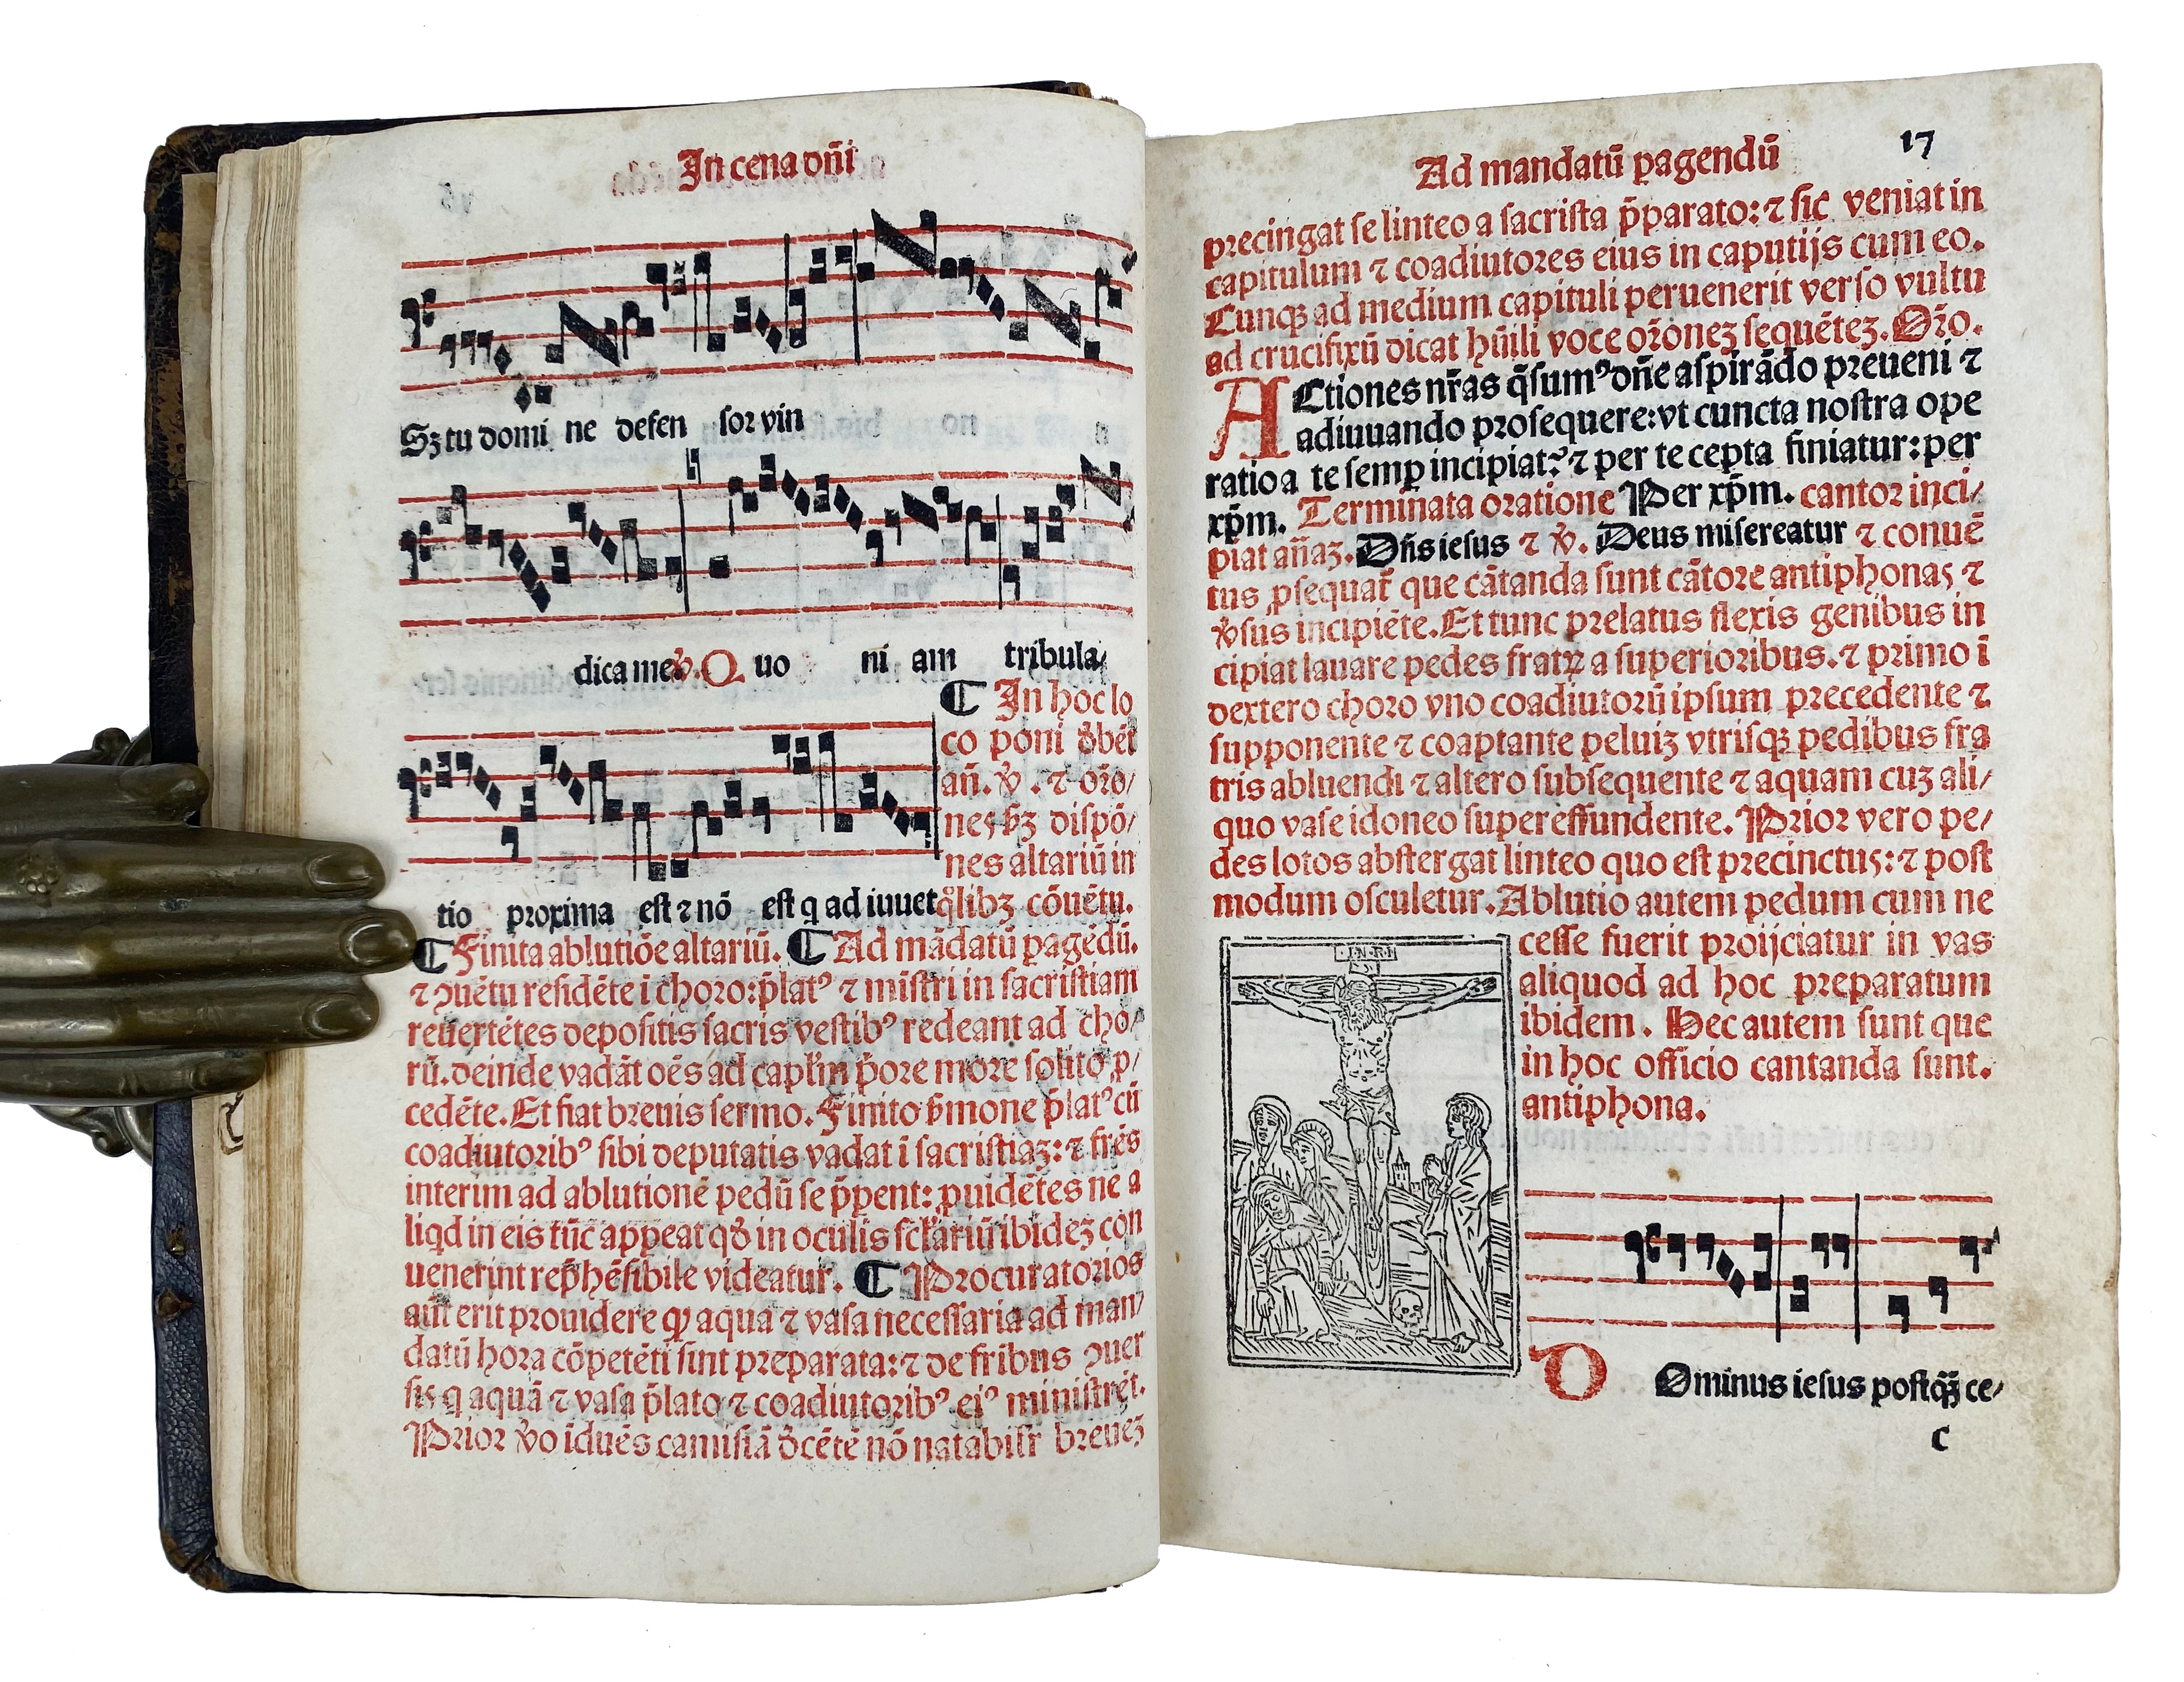 In cena dn̄i
Sꝫ tu domi ne defen sor vin
dica me. ꝟ. Quo ni am tribula/
¶ In hoc lo
co poni d̄bēt
an̄. ꝟ. ⁊ orō/
nes ſꝫ dispō/
nes altariū in
tio proxima est ⁊ nō est q ad iuuet q̄libꝫ cōuētu.
¶ Finita ablutiōe altariū. ¶ Ad mādatū ꝑagēdū.
⁊ ꝯuētu residēte i choro: p̄latꝰ ⁊ mīstri in sacristiam
reuertētes depositis sacris vestibꝰ redeant ad cho/
rū. deinde vadāt oēs ad capl'm p̄ore more solito p̄/
cedēte. Et fiat breuis sermo. Finito s̄mone p̄latꝰ cū
coadiutoribꝰ sibi deputatis vadat i sacristiaꝫ: ⁊ frēs
interim ad ablutionē pedū se p̄pent: ꝓuidētes ne a
liqd in eis tūc appeat qd̄ in oculis sclariū ibideꝫ con
uenerint rep̄hēsibile videatur. ¶ Procuratorios
aūt erit prouidere ꝙ aqua ⁊ vasa necessaria ad man/
datū hora cōpetēti sint preparata: ⁊ de fribus ꝯuer
sis q aquā ⁊ vasa p̄lato ⁊ coadiutoribꝰ eiꝰ ministrēt.
Prior ꝟo iduēs camisiā d̄cētē nō notabilr breueꝫ
Ad mandatū ꝑagendū 17
precingat se linteo a sacrista p̄parato: ⁊ sic veniat in
capitulum ⁊ coadiutores eius in caputijs cum eo.
Cunqꝫ ad medium capituli peruenerit verso vultu
ad crucifixū dicat hūili voce orōneꝫ sequēteꝫ. Orō.
ACtiones nr̄as q̄sumꝰ dn̄e aspirādo preueni ⁊
adiuuando prosequere: vt cuncta nostra ope
ratio a te semꝑ incipiat: ⁊ per te cepta finiatur: per
xp̄m. Terminata oratione Per xp̄m. cantor inci/
piat an̄aꝫ. Dn̄s iesus ⁊ ꝟ. Deus misereatur ⁊ conuē
tus ꝓsequat̄ que cātanda sunt cātore antiphonas ⁊
ꝟsus incipiēte. Et tunc prelatus flexis genibus in
cipiat lauare pedes fratꝝ a superioribus. ⁊ primo i
dextero choro vno coadiutorū ipsum precedente ⁊
supponente ⁊ coaptante peluiꝫ vtrisqꝫ pedibus fra
tris abluendi ⁊ altero subsequente ⁊ aquam cuꝫ ali/
quo vase idoneo supereffundente. Prior vero pe/
des lotos abstergat linteo quo est precinctus: ⁊ post
modum osculetur. Ablutio autem pedum cum ne
cesse fuerit proijciatur in vas
aliquod ad hoc preparatum
ibidem. Hec autem sunt que
in hoc officio cantanda sunt.
antiphona.
INRI
DOminus iesus postqꝫ ce/
c